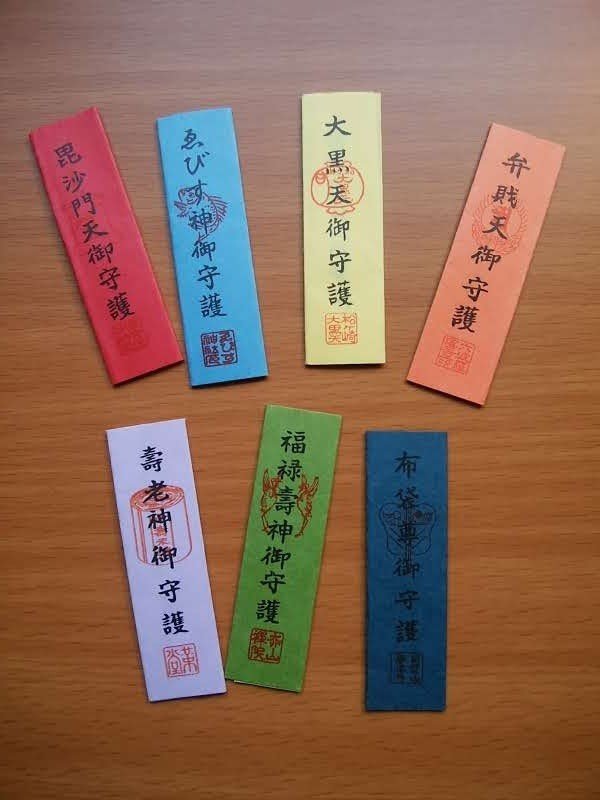 毘沙門天御守護
ゑびす神御守護
ゑびす
神社
大黒天御守護
松ヶ崎
大黒天
弁財天御守護
壽老神御守護
革堂
福禄壽神御守護
赤山
禅院
布袋尊御守護